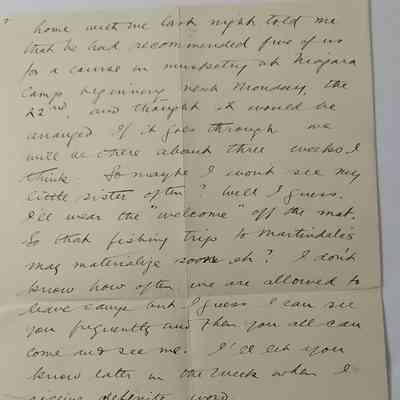 home with me last night told me
that he had recommended five of us
for a course in musketry at Niagara
Camp beginning next Monday, the
22nd, and thought it would be
arranged. If it goes through we
will be there about three weeks I
think. So maybe I won't see my
little sister often? Well I guess.
I'll wear the "welcome" off the mat.
So that fishing trip to Martindale's
may materialize soon eh? I don't
know how often we are allowed to
leave camp but I guess I can see
you frequently and then you all can
come and see me. I'll let you
know later in the week when I
receive definite word